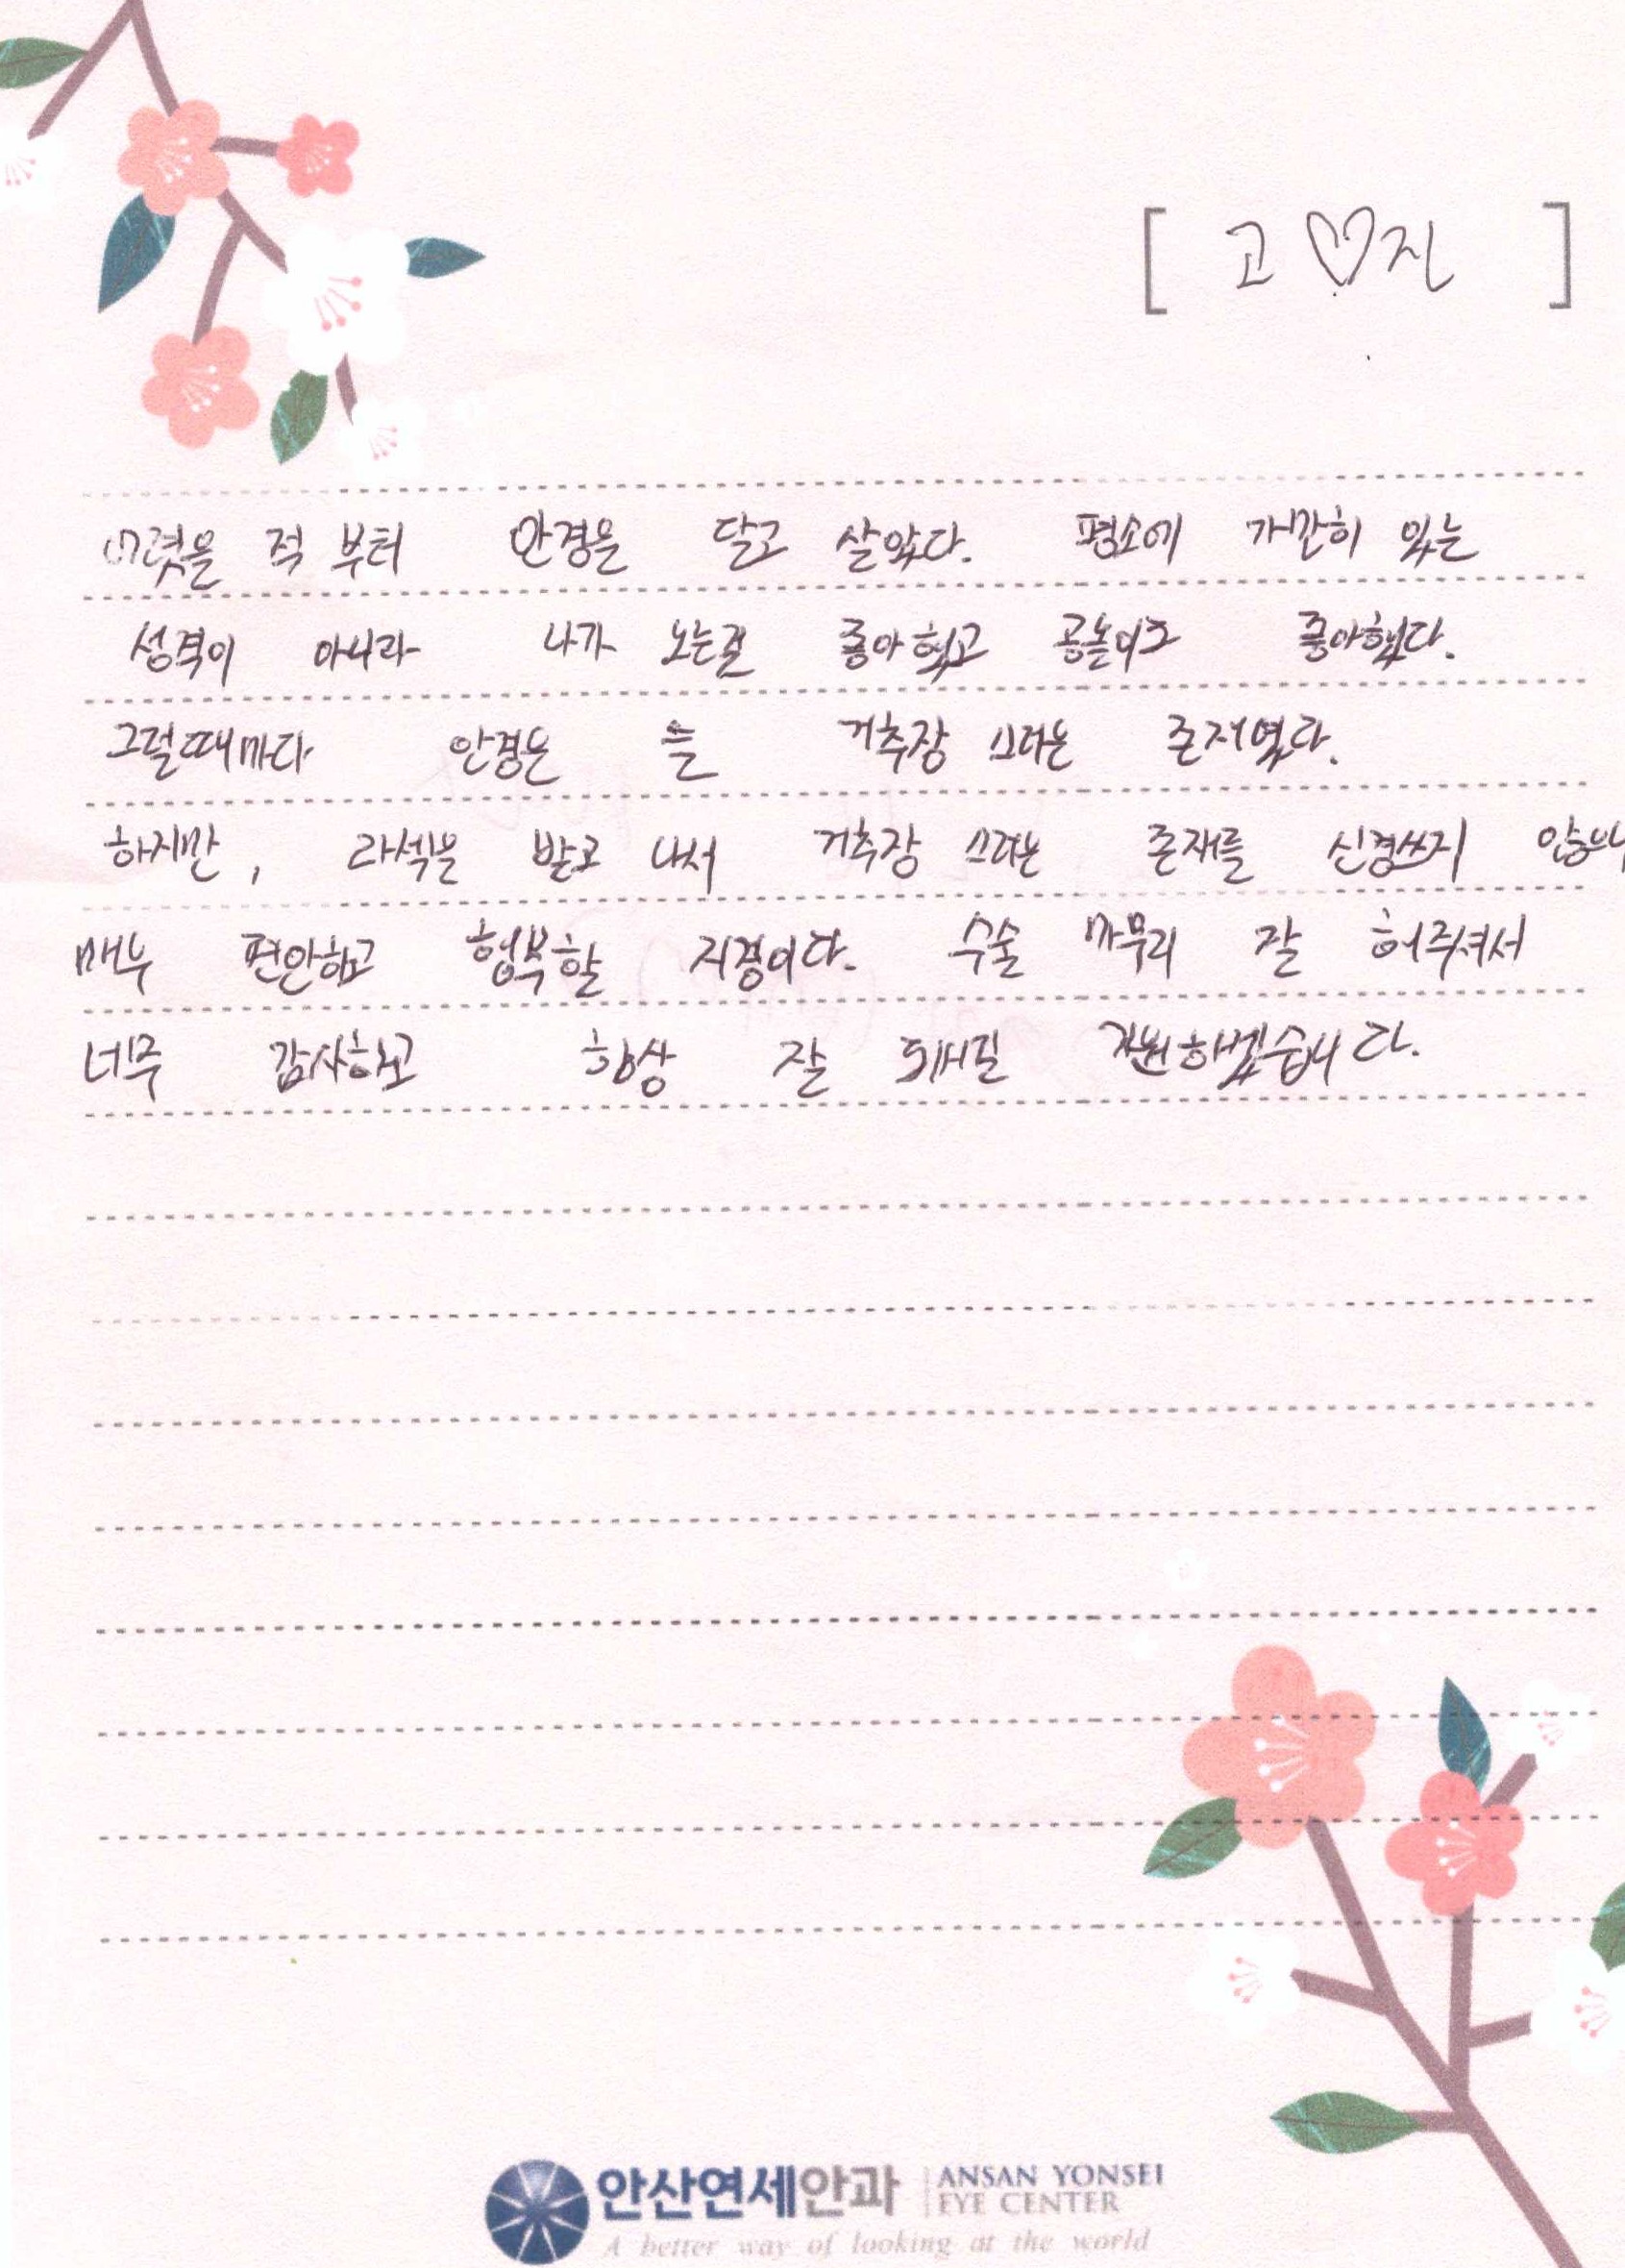 [ 고♡진 ]
어렸을 적 부터 안경을 달고 살았다. 평소에 가만히 있는
성격이 아니라 나가 노는걸 좋아했고 공놀이도 좋아했다.
그럴때마다 안경은 늘 거추장 스러운 존재였다.
하지만, 라섹을 받고 나서 거추장 스러운 존재를 신경쓰지 않으니
매우 편안하고 행복할 지경이다. 수술 마무리 잘 해주셔서
너무 감사하고 항상 잘 되시길 기원하겠습니다.
안산연세안과 ANSAN YONSEI
EYE CENTER
A better way of looking at the world